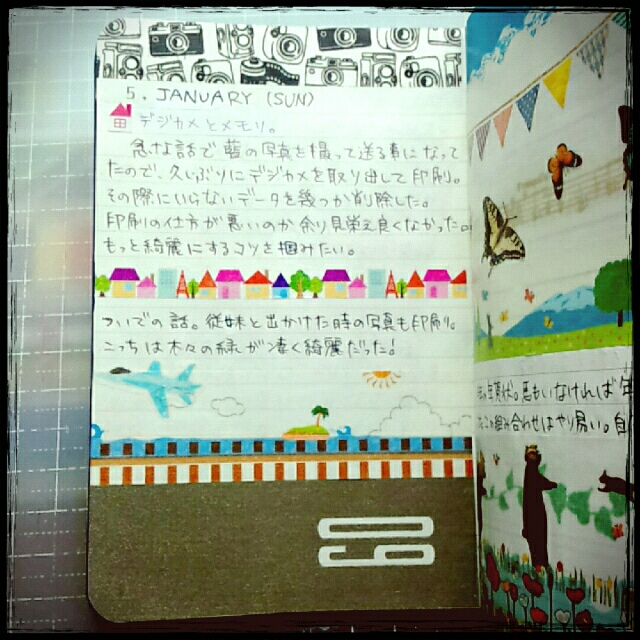 5. JANUARY (SUN)
デジカメとメモリ。
急な話で藍の写真を撮って送る事になって
たので、久しぶりにデジカメを取り出して印刷。
その際にいらないデータを幾つか削除した。
印刷の仕方が悪いのか余り見栄え良くなかった。
もっと綺麗にするコツを掴みたい。
ついでの話。従妹と出かけた時の写真も印刷。
こっちは木々の緑が凄く綺麗だった!
年賀状。悪もいなければ年
組み合わせはやり易い。自